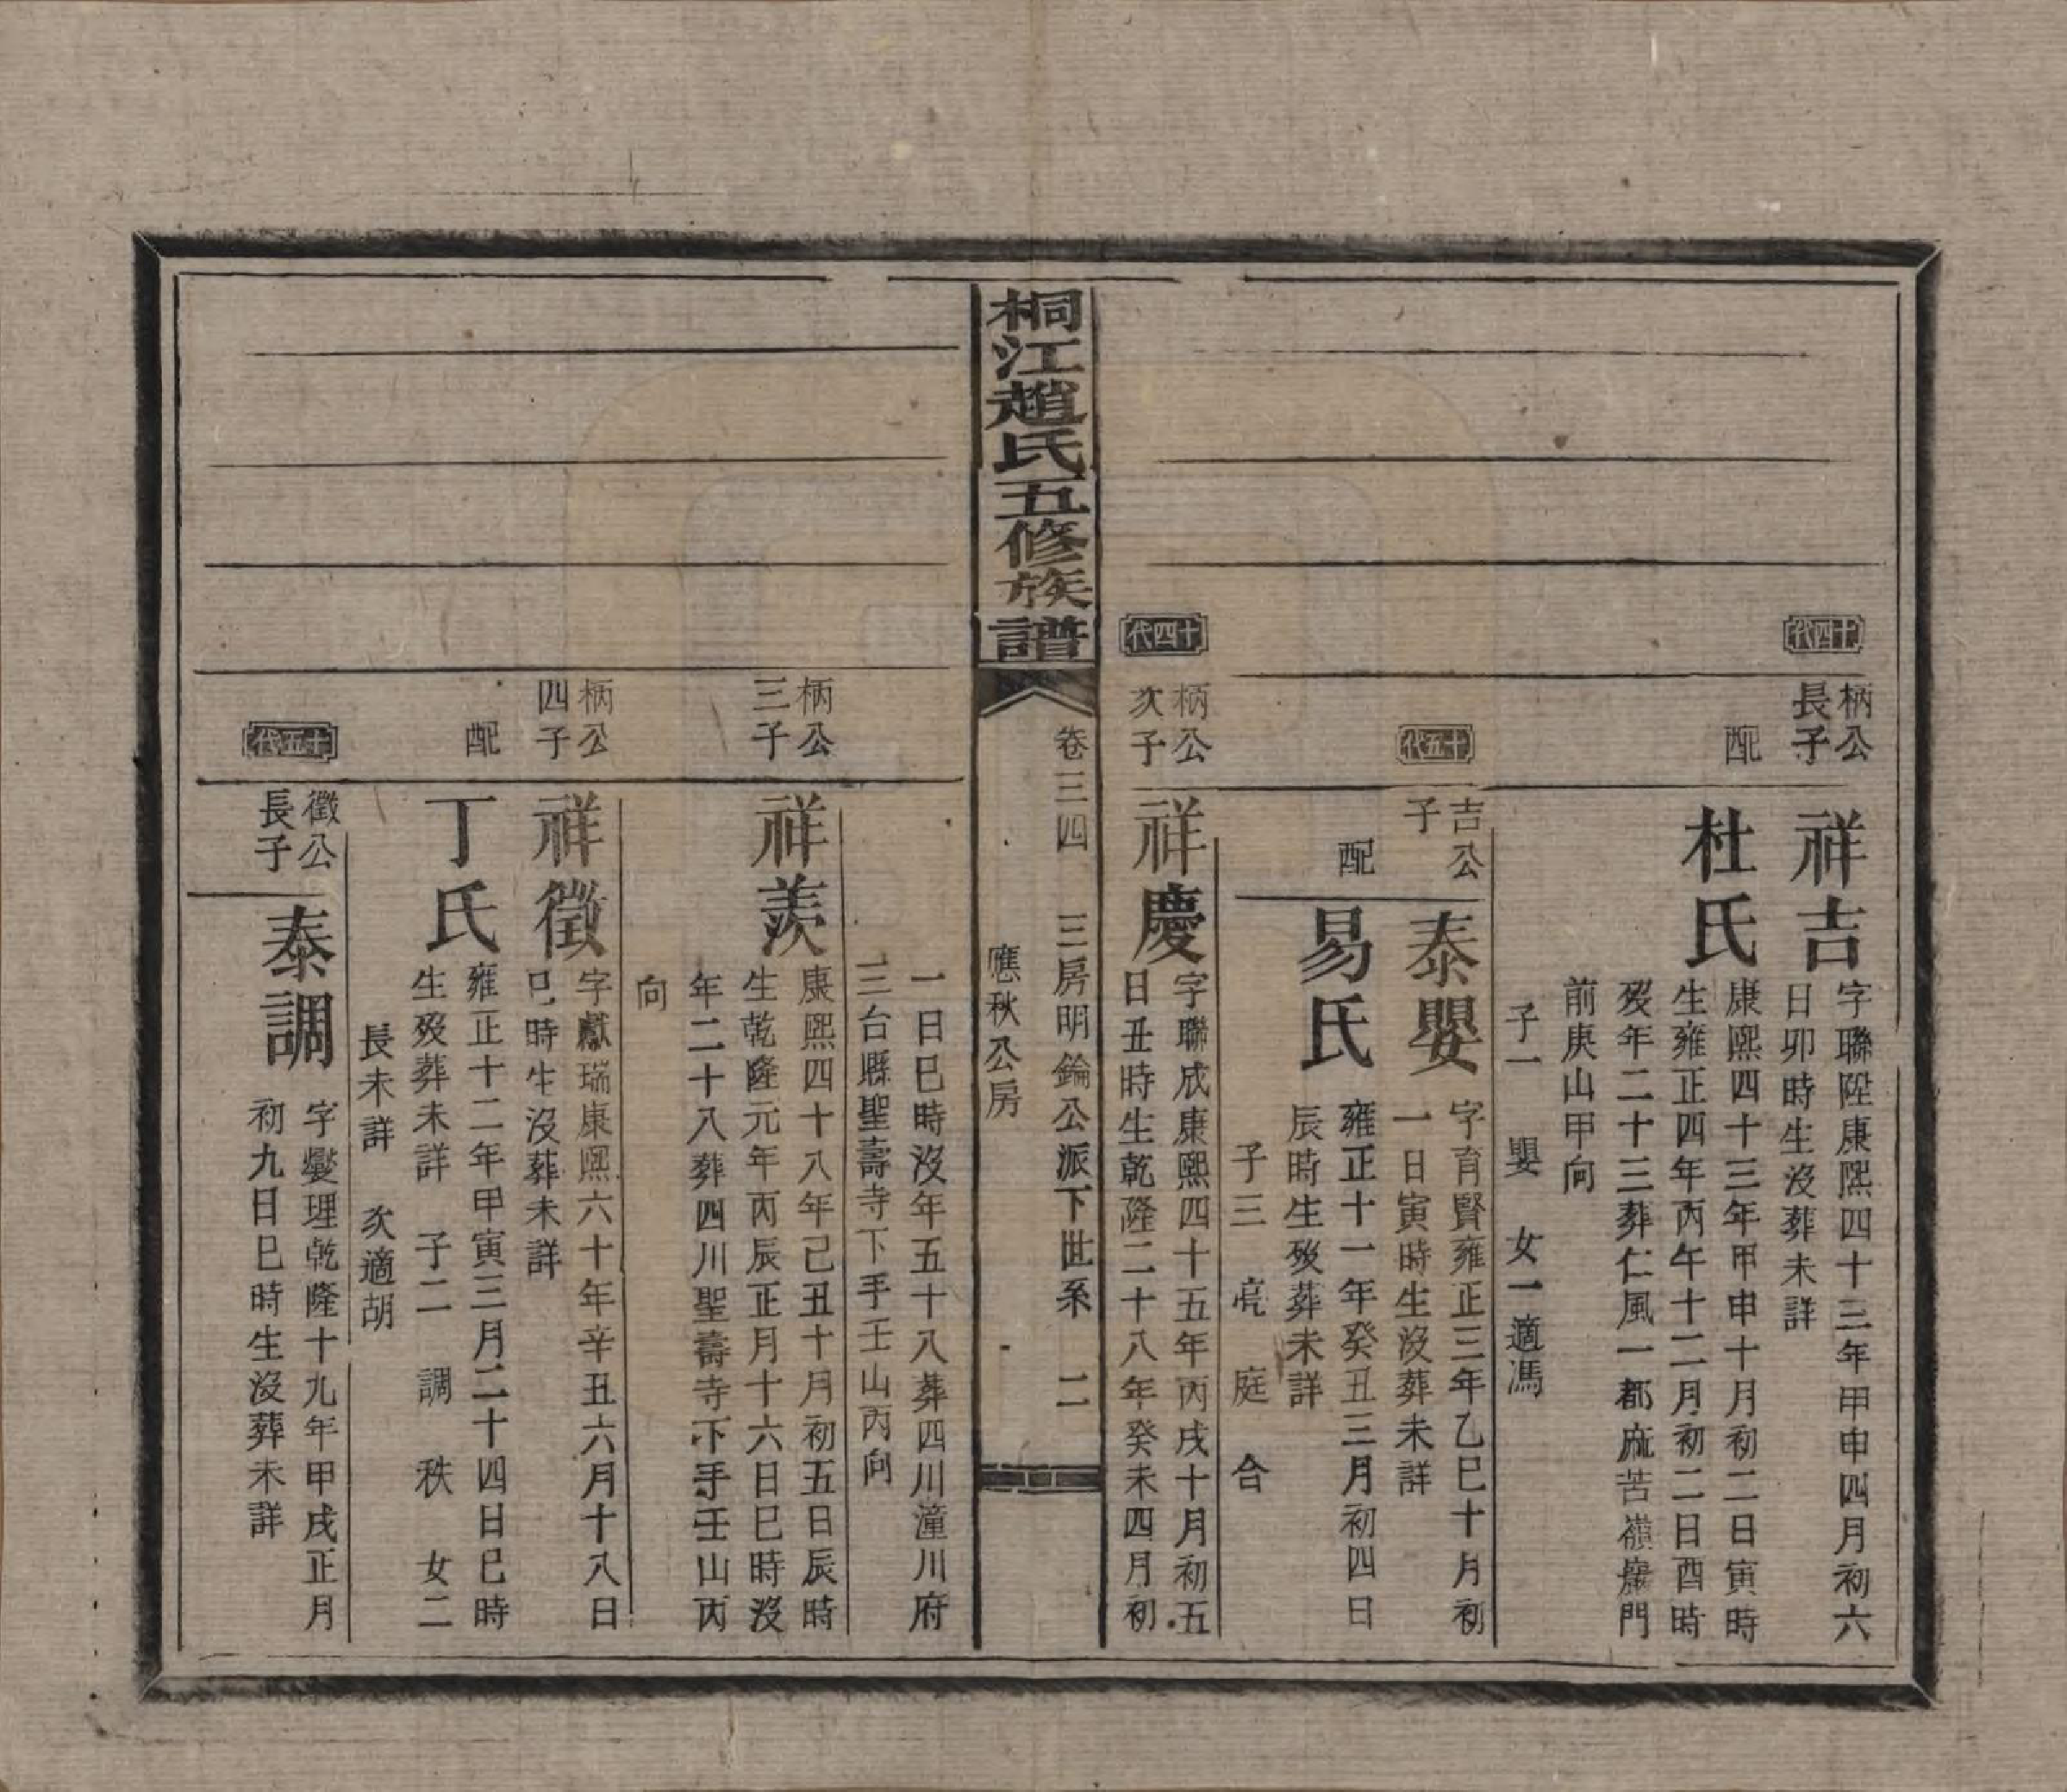 十四代
柄公
長子
祥吉
字聯陞康熙四十三年甲申四月初六
日卯時生沒葬未詳
配
杜氏
康熙四十三年甲申十月初二日寅時
生雍正四年丙午十二月初二日酉時
歿年二十三葬仁風一都庥苦嶺
門
前庚山甲向
子一 嬰 女一適馮
十五代
吉公
子
泰嬰
字育賢雍正三年乙巳十月初
一日寅時生沒葬未詳
配
易氏
雍正十一年癸丑三月初四日
辰時生歿葬未詳
子三 亮 庭 合
十四代
柄公
次子
祥慶
字聯成康熙四十五年丙戌十月初五
日丑時生乾隆二十八年癸未四月初
桐江趙氏五修族譜
卷三四 三房明錀公派下世系 二
應秋公房
一日巳時沒年五十八葬四川潼川府
三台縣聖壽寺下手壬山丙向
柄公
三子
祥羨
康熙四十八年己丑十月初五日辰時
生乾隆元年丙辰正月十六日巳時沒
年二十八葬四川聖壽寺下手壬山丙
向
柄公
四子
祥徵
字獻瑞康熙六十年辛丑六月十八日
巳時生沒葬未詳
配
丁氏
雍正十二年甲寅三月二十四日巳時
生歿葬未詳 子二 調 秩 女二
長未詳 次適胡
十五代
徵公
長子
泰調
字燮理乾隆十九年甲戌正月
初九日巳時生沒葬未詳